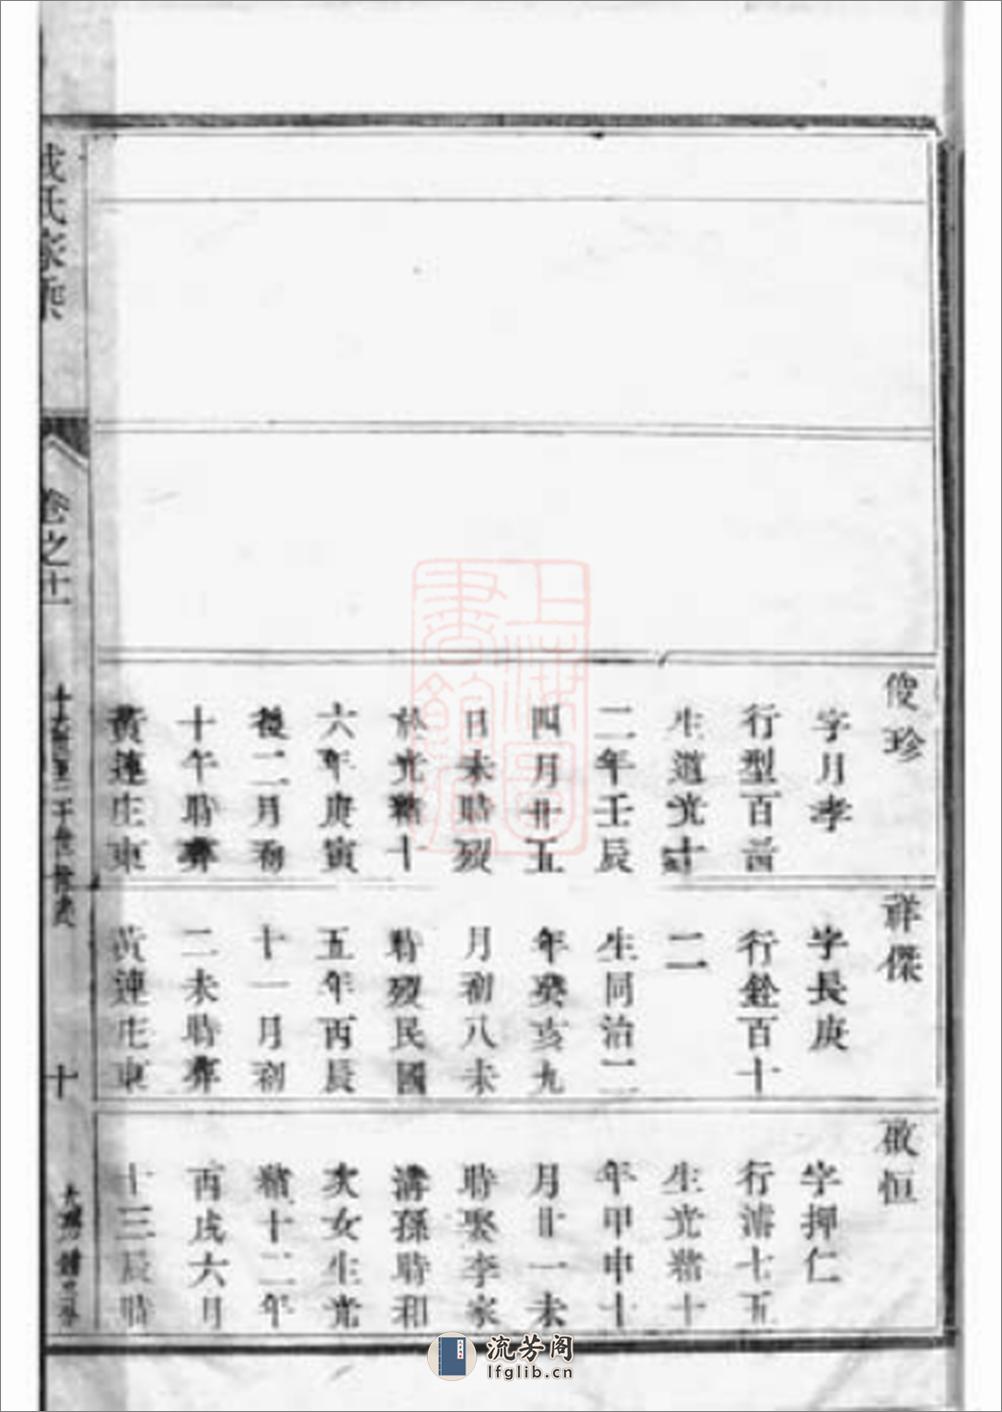 俊珍
字月孝
行型百
生道光十
二年壬辰
四月廿五
日未時歿
於光緒十
六年庚寅
後二月初
十午時葬
黃連庄東
祥傑
字長庚
行銓百十
二
生同治二
年癸亥九
月初八未
時歿民國
五年丙辰
十一月初
二未時葬
黃連庄東
敬恒
字押仁
行濬七五
生光緒十
年甲申十
月廿一未
時娶李家
溝孫時和
次女生光
緒十二年
丙戌六月
十三辰時
氏家乘
卷之十一
十
上海圖書館藏
流芳阁
lfglib.cn